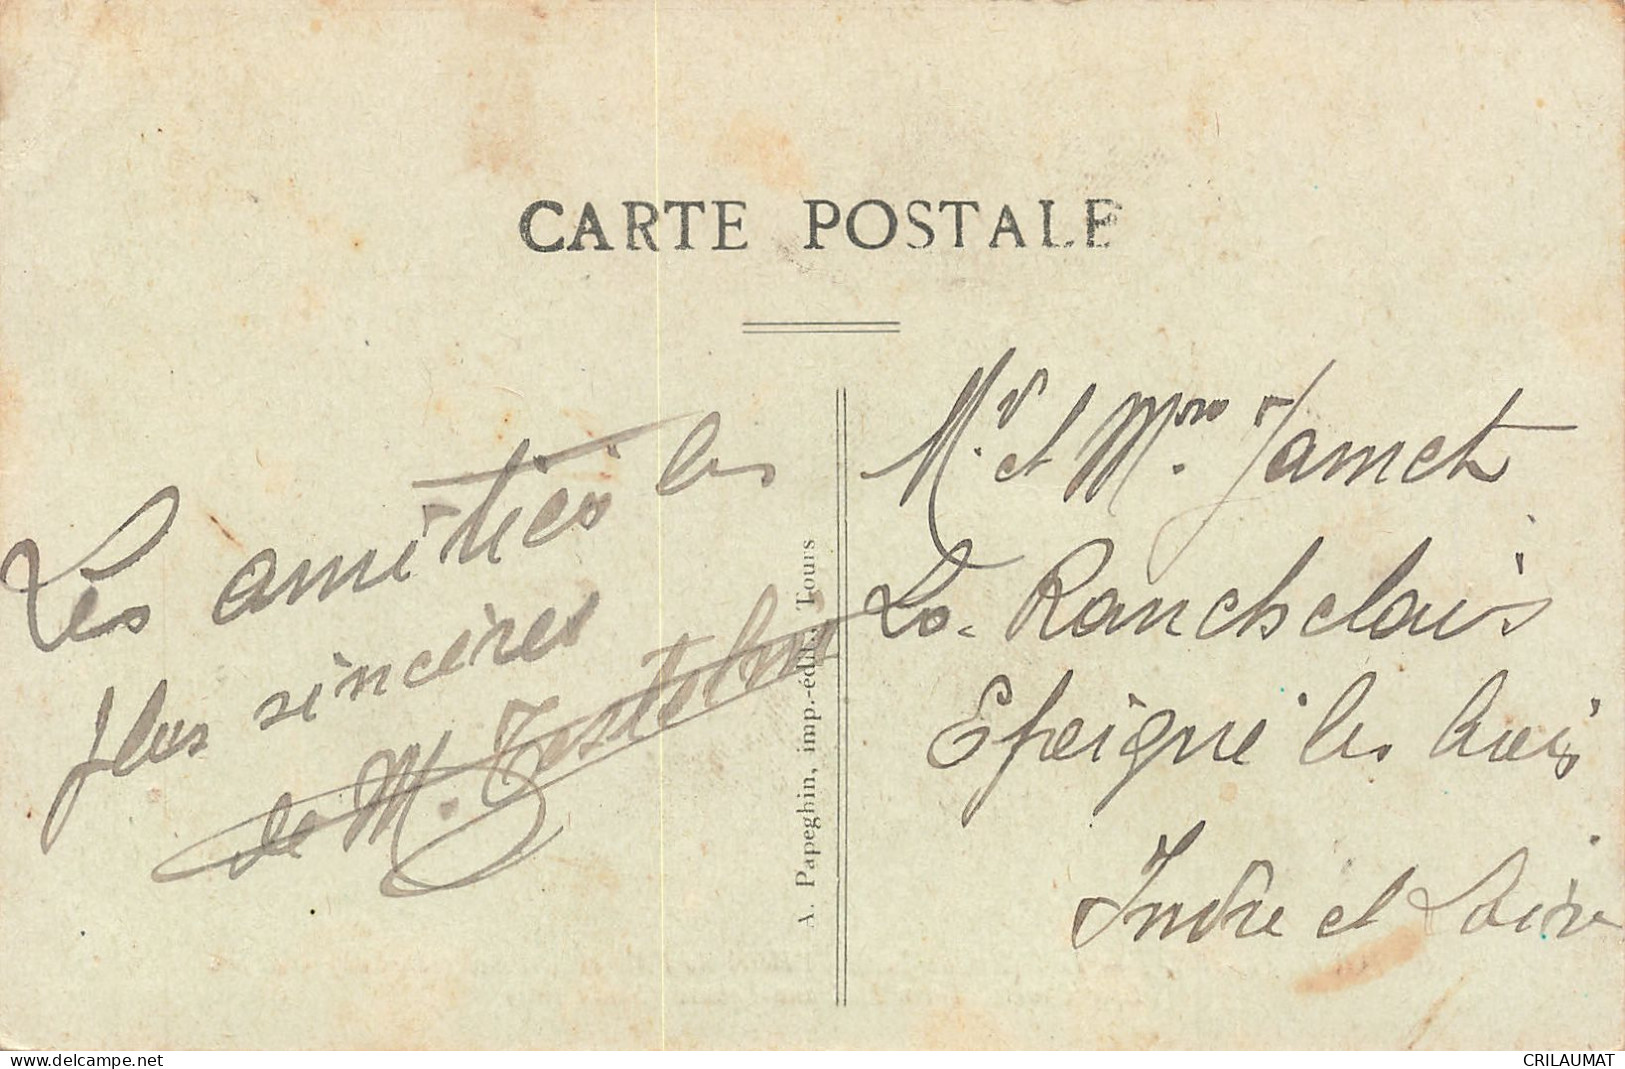 CARTE POSTALE
Les amitiés les
plus sincères
de M.
A. Papeghin, imp.-édit., Tours
Mr. et Mme. Jamet
La Ranchelais
Epeigné les bois
Indre et Loire
www.delcampe.net
CRILAUMAT